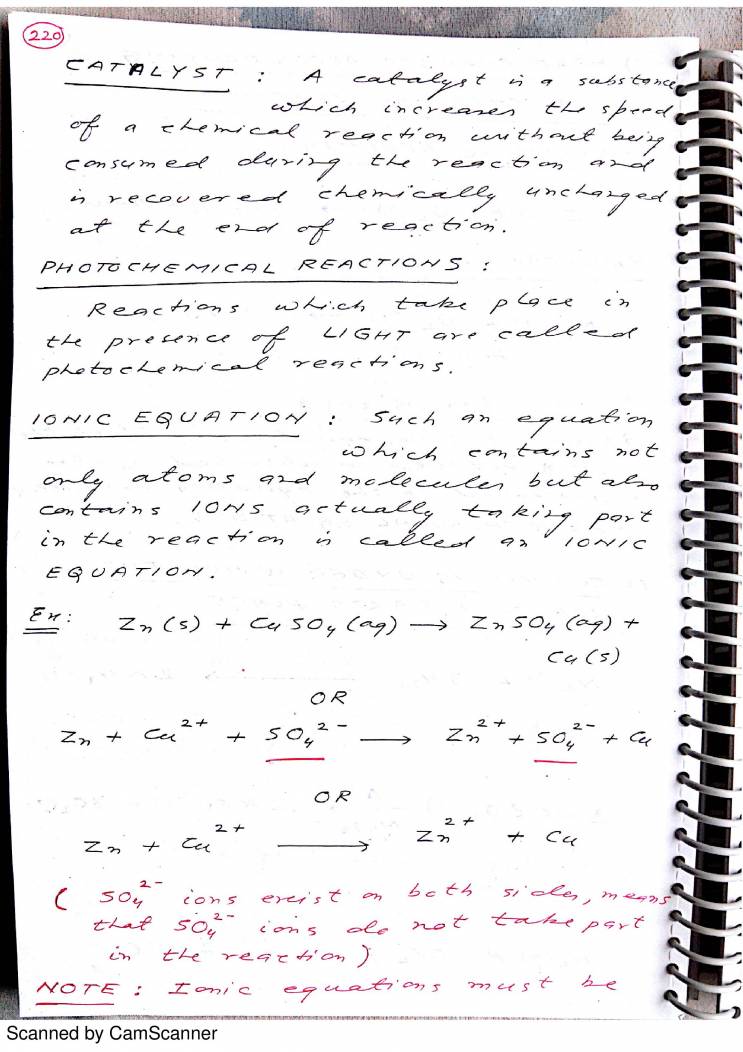 220
CATALYST : A catalyst is a substance
which increases the speed
of a chemical reaction without being
consumed during the reaction and
is recovered chemically unchanged
at the end of reaction.
PHOTOCHEMICAL REACTIONS :
Reactions which take place in
the presence of LIGHT are called
photochemical reactions.
IONIC EQUATION : Such an equation
which contains not
only atoms and molecules but also
contains IONS actually taking part
in the reaction is called an IONIC
EQUATION.
Ex: Zn (s) + CuSO₄ (aq) → ZnSO₄ (aq) +
Cu (s)
OR
Zn + Cu²⁺ + SO₄²⁻ → Zn²⁺ + SO₄²⁻ + Cu
OR
Zn + Cu²⁺ → Zn²⁺ + Cu
( SO₄²⁻ ions exist on both sides, means
that SO₄²⁻ ions do not take part
in the reaction )
NOTE : Ionic equations must be
Scanned by CamScanner